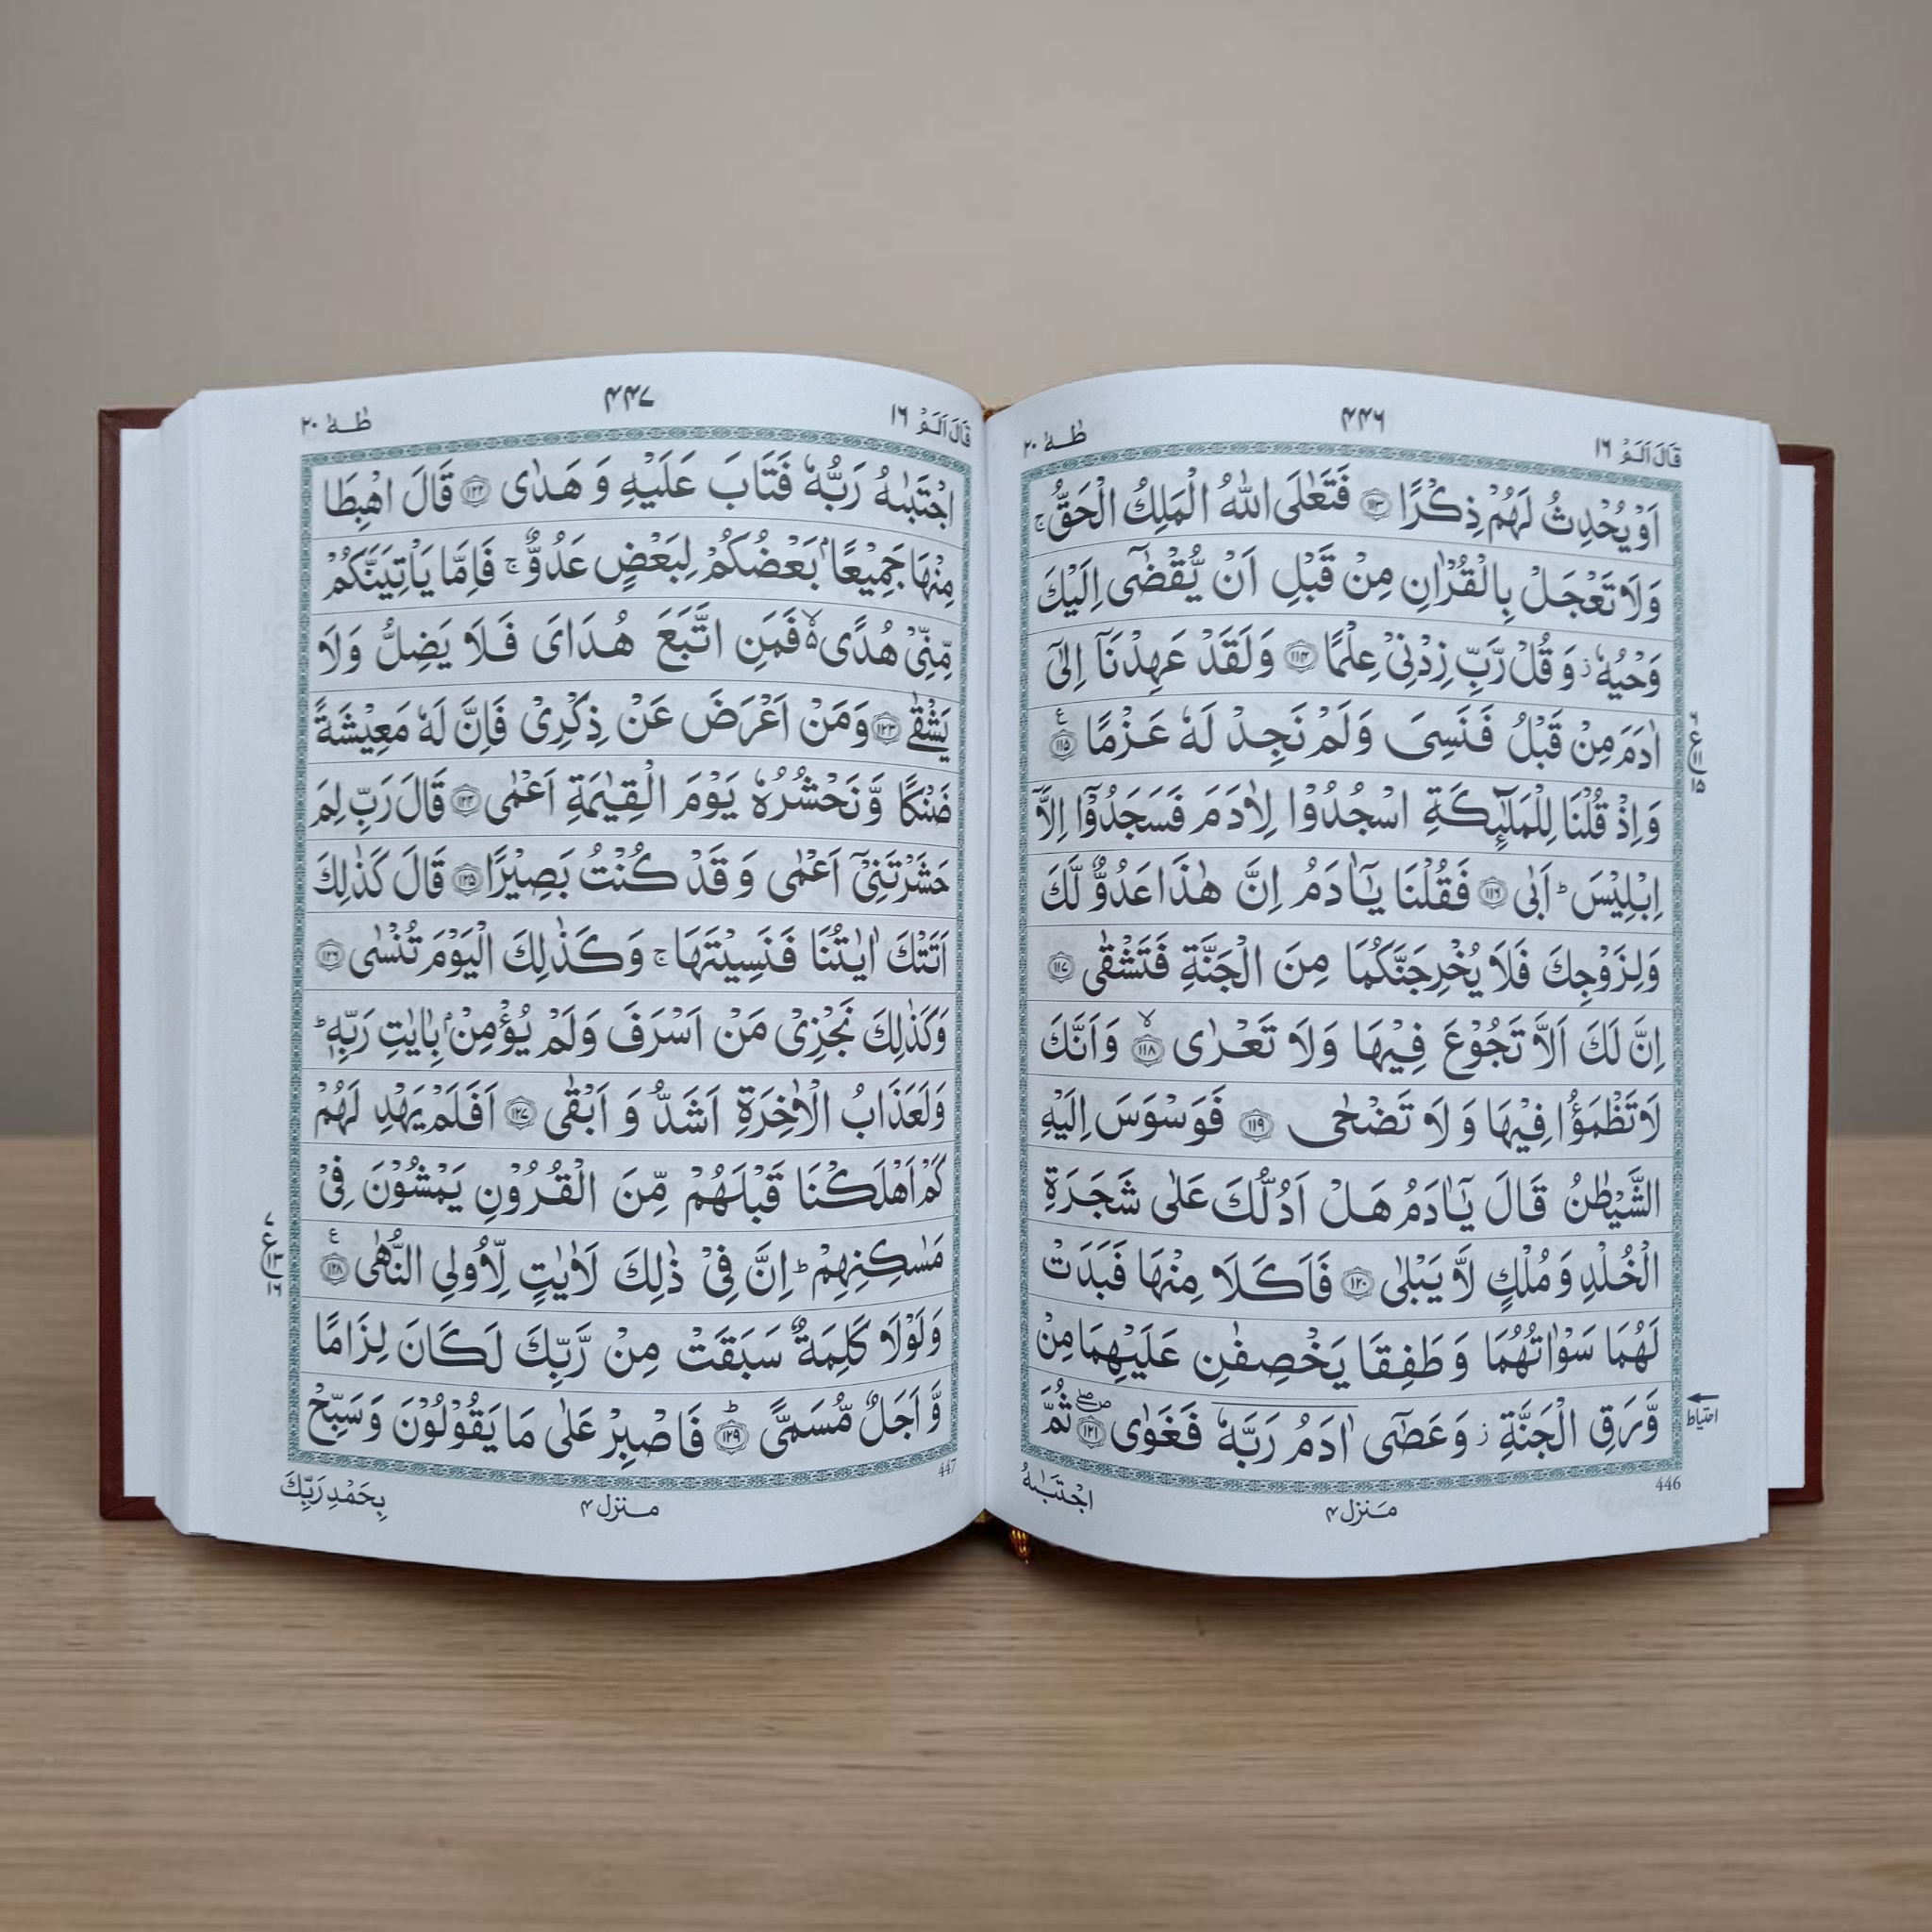 قَالَ اَلَمْ ١٦
٤٤٦
طٰهٰ ٢٠
اَوْ يُحْدِثُ لَهُمْ ذِكْرًا ۝١١٣ فَتَعٰلَى اللّٰهُ الْمَلِكُ الْحَقُّ ۚ
وَلَا تَعْجَلْ بِالْقُرْاٰنِ مِنْ قَبْلِ اَنْ يُّقْضٰٓى اِلَيْكَ
وَحْيُهٗ ۫ وَقُلْ رَّبِّ زِدْنِيْ عِلْمًا ۝١١٤ وَلَقَدْ عَهِدْنَآ اِلٰٓى
اٰدَمَ مِنْ قَبْلُ فَنَسِيَ وَلَمْ نَجِدْ لَهٗ عَزْمًا ۝١١٥ ع
وَاِذْ قُلْنَا لِلْمَلٰٓئِكَةِ اسْجُدُوْا لِاٰدَمَ فَسَجَدُوْٓا اِلَّآ
اِبْلِيْسَ ؕ اَبٰى ۝١١٦ فَقُلْنَا يٰٓاٰدَمُ اِنَّ هٰذَا عَدُوٌّ لَّكَ
وَلِزَوْجِكَ فَلَا يُخْرِجَنَّكُمَا مِنَ الْجَنَّةِ فَتَشْقٰى ۝١١٧
اِنَّ لَكَ اَلَّا تَجُوْعَ فِيْهَا وَلَا تَعْرٰى ۝١١٨ۙ وَاَنَّكَ
لَا تَظْمَؤُا فِيْهَا وَلَا تَضْحٰى ۝١١٩ فَوَسْوَسَ اِلَيْهِ
الشَّيْطٰنُ قَالَ يٰٓاٰدَمُ هَلْ اَدُلُّكَ عَلٰى شَجَرَةِ
الْخُلْدِ وَمُلْكٍ لَّا يَبْلٰى ۝١٢٠ فَاَكَلَا مِنْهَا فَبَدَتْ
لَهُمَا سَوْاٰتُهُمَا وَطَفِقَا يَخْصِفٰنِ عَلَيْهِمَا مِنْ
وَّرَقِ الْجَنَّةِ ۫ وَعَصٰٓى اٰدَمُ رَبَّهٗ فَغَوٰى ۝١٢١ ۖ ثُمَّ
احتیاط
446
مَنزل ٤
اجْتَبٰىهُ
قَالَ اَلَمْ ١٦
٤٤٧
طٰهٰ ٢٠
اجْتَبٰىهُ رَبُّهٗ فَتَابَ عَلَيْهِ وَهَدٰى ۝١٢٢ قَالَ اهْبِطَا
مِنْهَا جَمِيْعًۢا بَعْضُكُمْ لِبَعْضٍ عَدُوٌّ ۚ فَاِمَّا يَاْتِيَنَّكُمْ
مِّنِّيْ هُدًى ۙ۬ فَمَنِ اتَّبَعَ هُدَايَ فَلَا يَضِلُّ وَلَا
يَشْقٰى ۝١٢٣ وَمَنْ اَعْرَضَ عَنْ ذِكْرِيْ فَاِنَّ لَهٗ مَعِيْشَةً
ضَنْكًا وَّنَحْشُرُهٗ يَوْمَ الْقِيٰمَةِ اَعْمٰى ۝١٢٤ قَالَ رَبِّ لِمَ
حَشَرْتَنِيْٓ اَعْمٰى وَقَدْ كُنْتُ بَصِيْرًا ۝١٢٥ قَالَ كَذٰلِكَ
اَتَتْكَ اٰيٰتُنَا فَنَسِيْتَهَا ۚ وَكَذٰلِكَ الْيَوْمَ تُنْسٰى ۝١٢٦
وَكَذٰلِكَ نَجْزِيْ مَنْ اَسْرَفَ وَلَمْ يُؤْمِنْۢ بِاٰيٰتِ رَبِّهٖ ؕ
وَلَعَذَابُ الْاٰخِرَةِ اَشَدُّ وَاَبْقٰى ۝١٢٧ اَفَلَمْ يَهْدِ لَهُمْ
كَمْ اَهْلَكْنَا قَبْلَهُمْ مِّنَ الْقُرُوْنِ يَمْشُوْنَ فِيْ
مَسٰكِنِهِمْ ؕ اِنَّ فِيْ ذٰلِكَ لَاٰيٰتٍ لِّاُولِي النُّهٰى ۝١٢٨ ع
وَلَوْلَا كَلِمَةٌ سَبَقَتْ مِنْ رَّبِّكَ لَكَانَ لِزَامًا
وَّاَجَلٌ مُّسَمًّى ۝١٢٩ؕ فَاصْبِرْ عَلٰى مَا يَقُوْلُوْنَ وَسَبِّحْ
447
مـنزل ٤
بِحَمْدِ رَبِّكَ